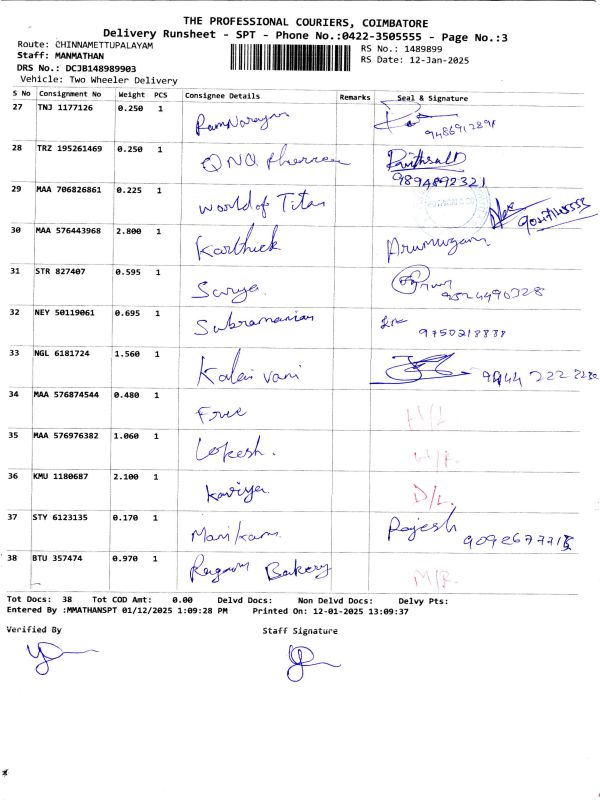 THE PROFESSIONAL COURIERS, COIMBATORE
Delivery Runsheet - SPT - Phone No.:0422-3505555 - Page No.:3
Route: CHINNAMETTUPALAYAM
RS No.: 1489899
Staff: MANMATHAN
RS Date: 12-Jan-2025
DRS No.: DCJB148989903
Vehicle: Two Wheeler Delivery
S No Consignment No Weight PCS Consignee Details Remarks Seal & Signature
27 TNJ 1177126 0.250 1 RamNarayan
28 TRZ 195261469 0.250 1 QNQ
9894892321
29 MAA 706826861 0.225 1 World of Titan
30 MAA 576443968 2.800 1 Karthick Arumugam
31 STR 827407 0.595 1 Surya 9524490328
32 NEY 50119061 0.695 1 Subramanian 9750218838
33 NGL 6181724 1.560 1 Kalai vani 9944 222
34 MAA 576874544 0.480 1 Free H/L
35 MAA 576976382 1.060 1 Lokesh. H/R.
36 KMU 1180687 2.100 1 Kaviya D/L.
37 STY 6123135 0.170 1 Manikam Rajesh
38 BTU 357474 0.970 1 Ragam Bakery M/R.
Tot Docs: 38 Tot COD Amt: 0.00 Delvd Docs: Non Delvd Docs: Delvy Pts:
Entered By :MMATHANSPT 01/12/2025 1:09:28 PM Printed On: 12-01-2025 13:09:37
Verified By Staff Signature